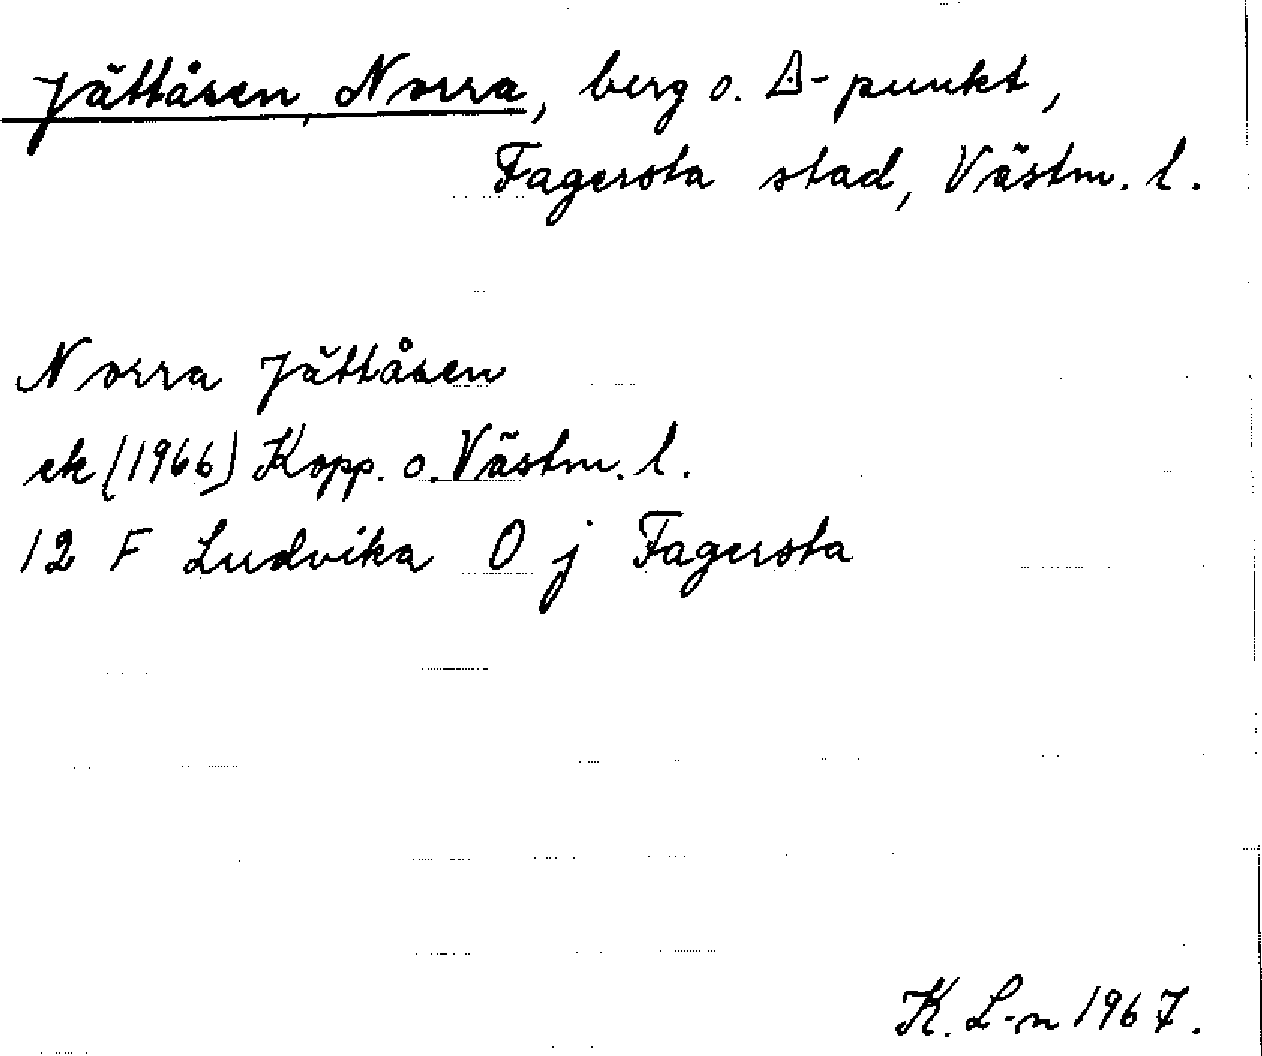 Jättåsen, Norra, berg o. ∆-punkt,
Fagersta stad, Västm. l.
Norra Jättåsen
ek (1966) Kopp. o. Västm. l.
12 F Ludvika 0 j Fagersta
K. L-n 1967.